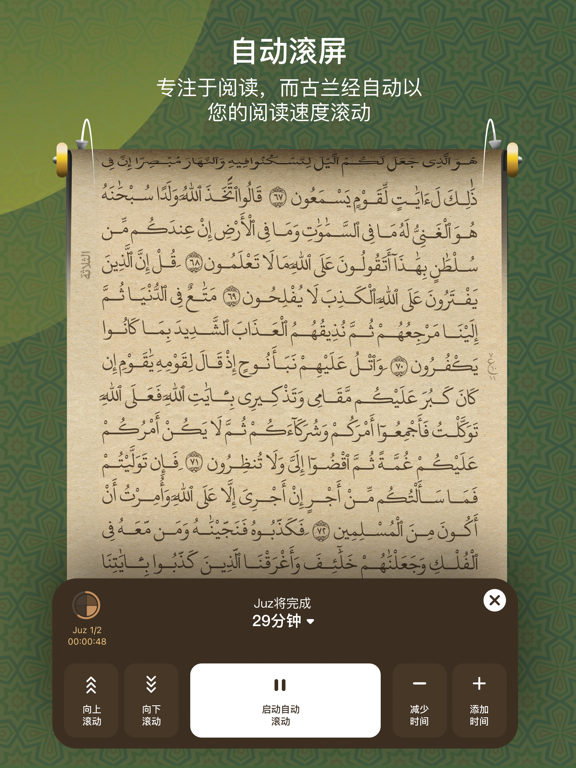 自动滚屏
专注于阅读，而古兰经自动以
您的阅读速度滚动
هُوَ ٱلَّذِى جَعَلَ لَكُمُ ٱلَّيْلَ لِتَسْكُنُوا۟ فِيهِ وَٱلنَّهَارَ مُبْصِرًا إِنَّ فِى
ذَٰلِكَ لَـَٔايَـٰتٍ لِّقَوْمٍ يَسْمَعُونَ ٦٧ قَالُوا۟ ٱتَّخَذَ ٱللَّهُ وَلَدًا سُبْحَـٰنَهُۥ
هُوَ ٱلْغَنِىُّ لَهُۥ مَا فِى ٱلسَّمَـٰوَٰتِ وَمَا فِى ٱلْأَرْضِ إِنْ عِندَكُم مِّن
سُلْطَـٰنٍۭ بِهَـٰذَآ أَتَقُولُونَ عَلَى ٱللَّهِ مَا لَا تَعْلَمُونَ ٦٨ قُلْ إِنَّ ٱلَّذِينَ
الثلاثة
يَفْتَرُونَ عَلَى ٱللَّهِ ٱلْكَذِبَ لَا يُفْلِحُونَ ٦٩ مَتَـٰعٌ فِى ٱلدُّنْيَا ثُمَّ
إِلَيْنَا مَرْجِعُهُمْ ثُمَّ نُذِيقُهُمُ ٱلْعَذَابَ ٱلشَّدِيدَ بِمَا كَانُوا۟
يَكْفُرُونَ ٧٠ وَٱتْلُ عَلَيْهِمْ نَبَأَ نُوحٍ إِذْ قَالَ لِقَوْمِهِۦ يَـٰقَوْمِ إِن
كَانَ كَبُرَ عَلَيْكُم مَّقَامِى وَتَذْكِيرِى بِـَٔايَـٰتِ ٱللَّهِ فَعَلَى ٱللَّهِ
تَوَكَّلْتُ فَأَجْمِعُوٓا۟ أَمْرَكُمْ وَشُرَكَآءَكُمْ ثُمَّ لَا يَكُنْ أَمْرُكُمْ
عَلَيْكُمْ غُمَّةً ثُمَّ ٱقْضُوٓا۟ إِلَىَّ وَلَا تُنظِرُونِ ٧١ فَإِن تَوَلَّيْتُمْ
فَمَا سَأَلْتُكُم مِّنْ أَجْرٍ إِنْ أَجْرِىَ إِلَّا عَلَى ٱللَّهِ وَأُمِرْتُ أَنْ
أَكُونَ مِنَ ٱلْمُسْلِمِينَ ٧٢ فَكَذَّبُوهُ فَنَجَّيْنَـٰهُ وَمَن مَّعَهُۥ فِى
ٱلْفُلْكِ وَجَعَلْنَـٰهُمْ خَلَـٰٓئِفَ وَأَغْرَقْنَا ٱلَّذِينَ كَذَّبُوا۟ بِـَٔايَـٰتِنَا
Juz 1/2
00:00:48
Juz将完成
29分钟
向上
滚动
向下
滚动
启动自动
滚动
减少
时间
添加
时间